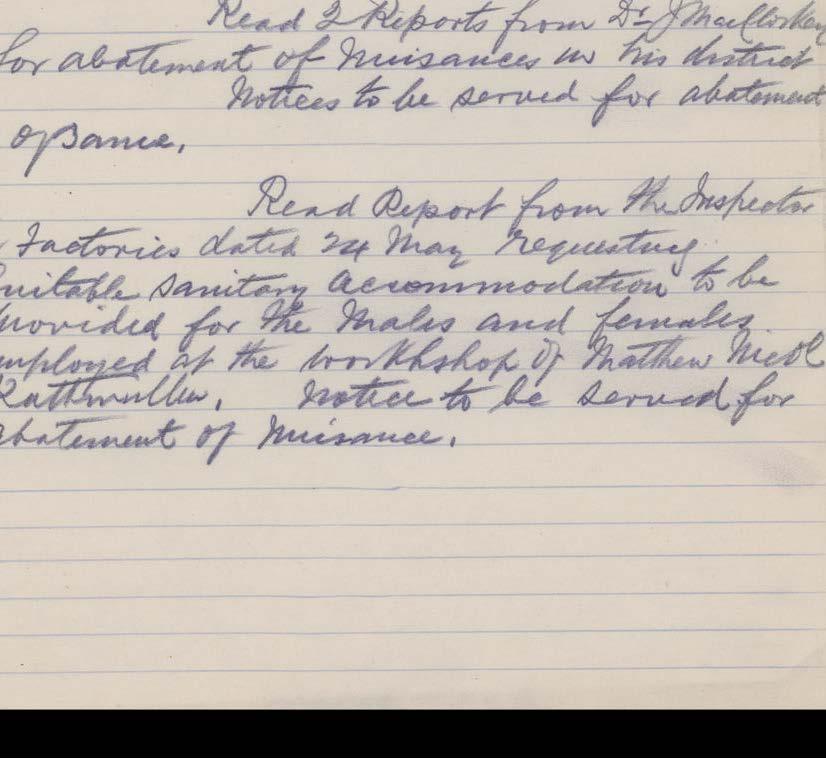 Read 2 Reports from Dr J MacCloskey
for abatement of Nuisances in his district
Notices to be served for abatement
of Same.
Read Report from the Inspector
Factories dated 24 May requesting
suitable sanitary accommodation to be
provided for the Males and females
employed at the workhshop of Matthew Nicol
Rathmullen. Notice to be served for
abatement of Nuisance.